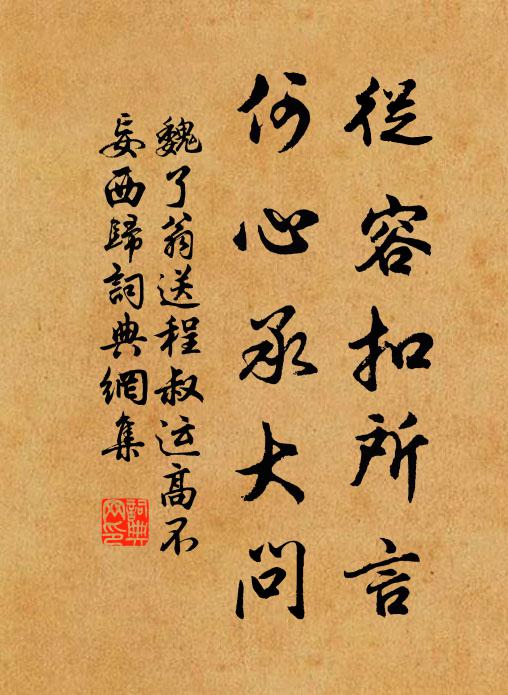 從容扣所言
何心承大問
魏了翁送程叔运高不
妄西歸詞典網集
詞典网印